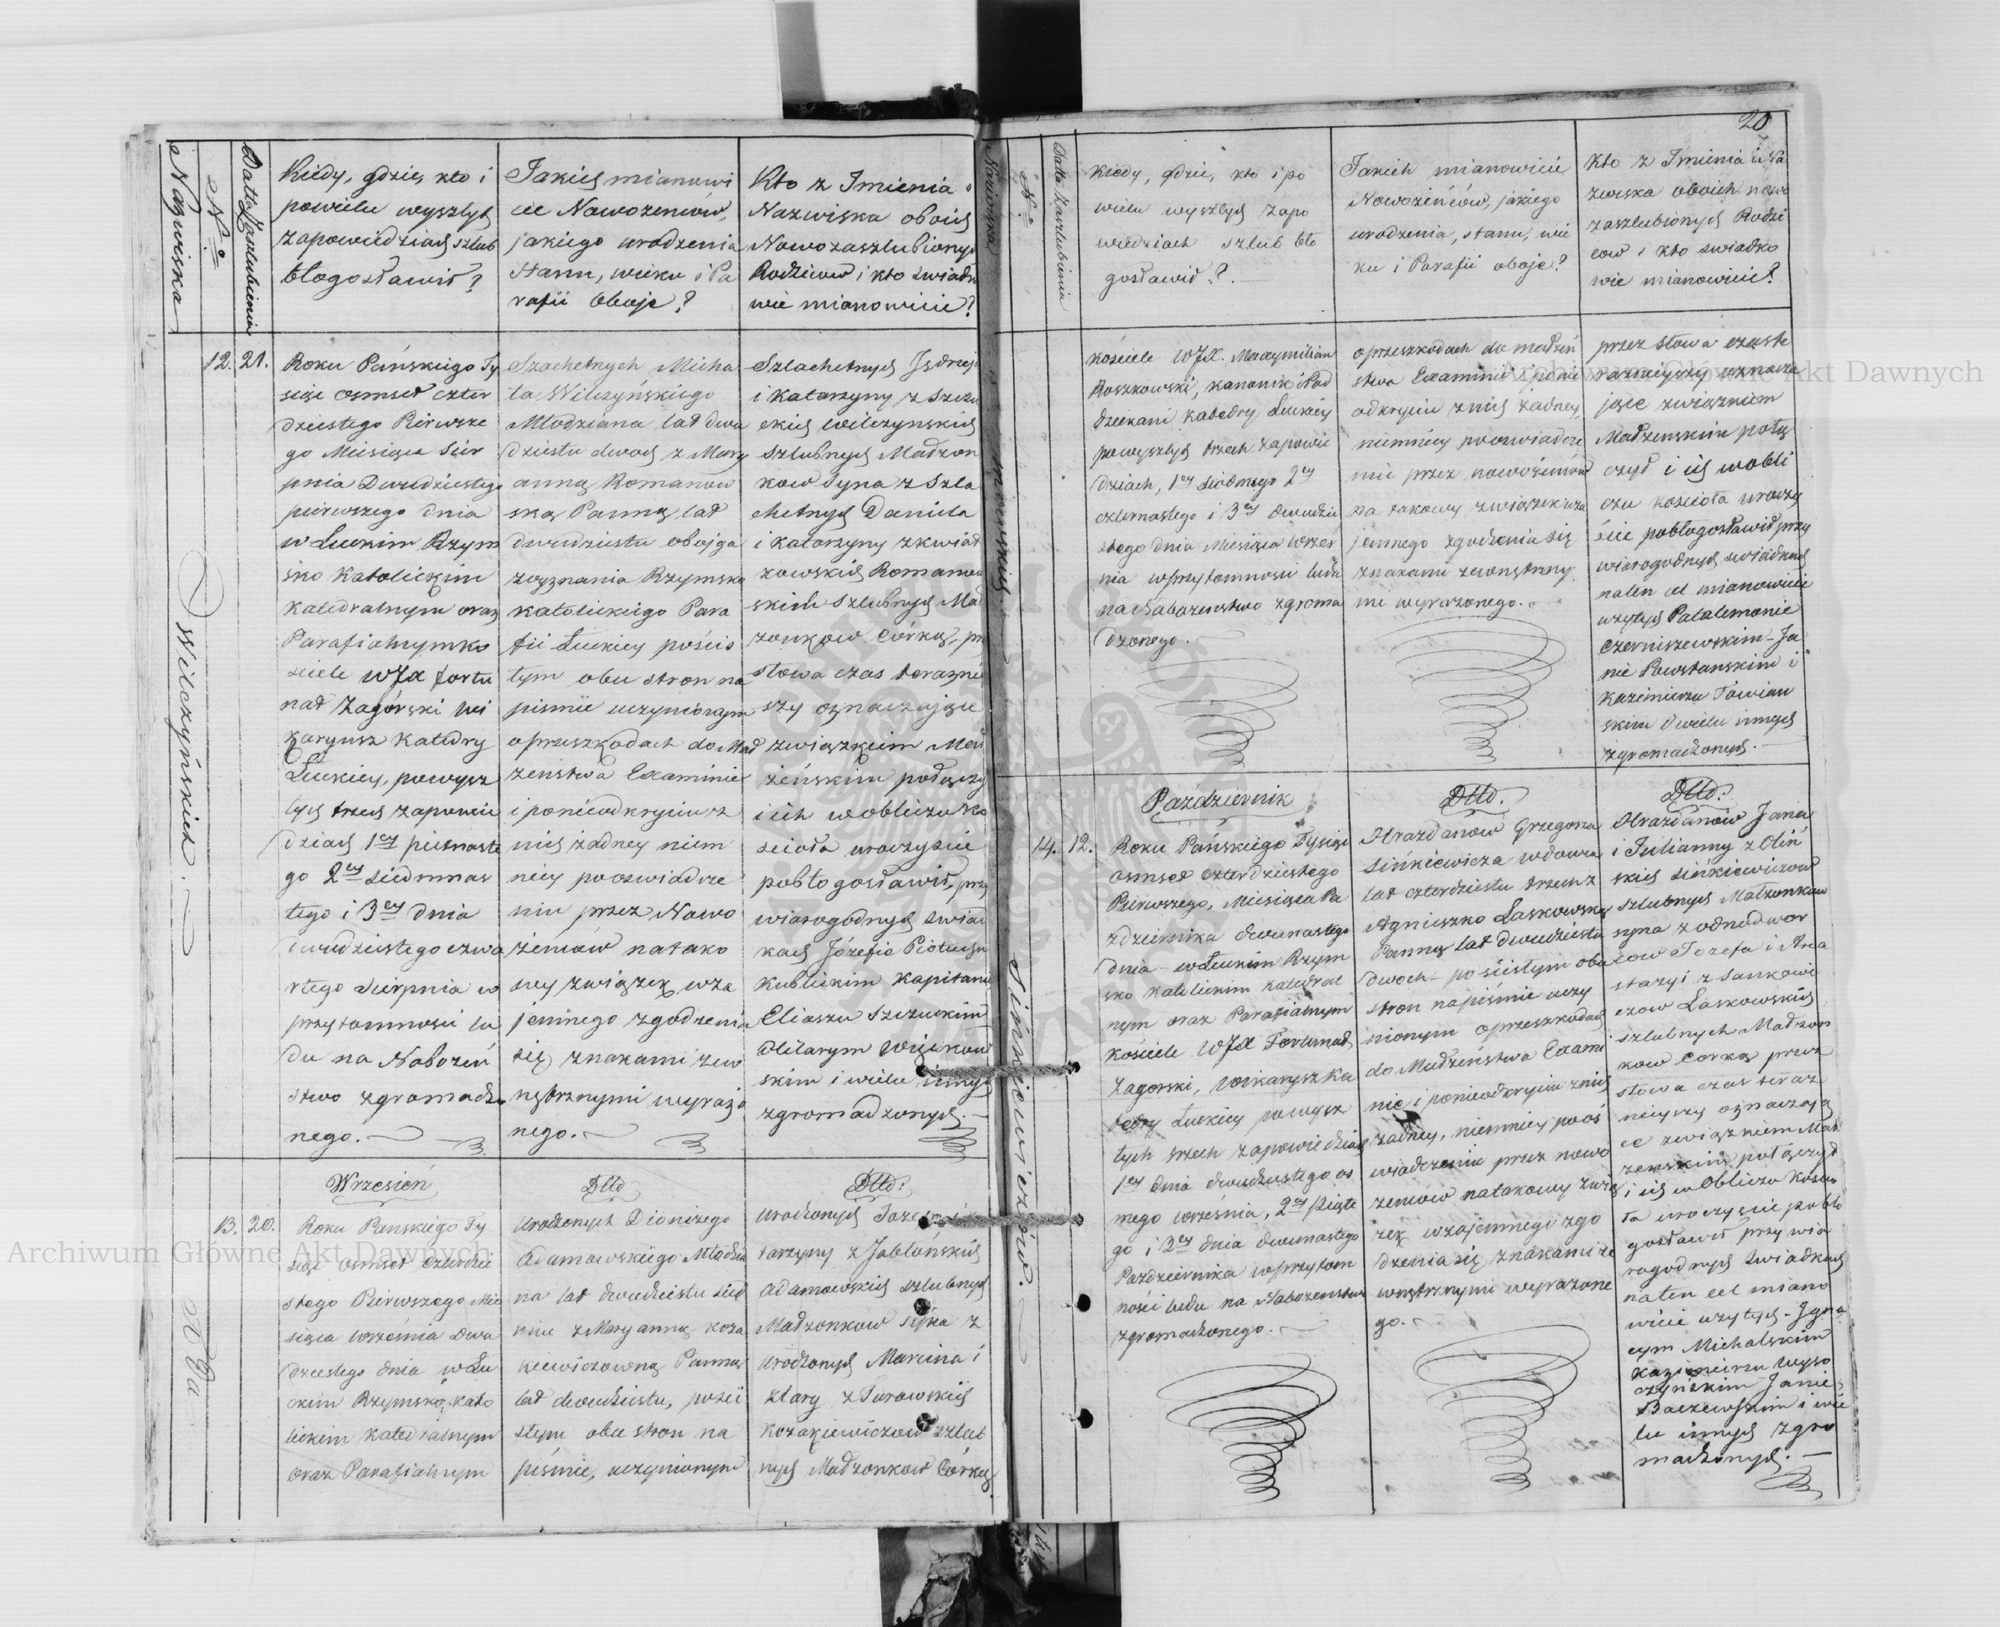 Nazwiska
N°
Datta Zaslubienia
Kiedy, gdzie, kto i
powielu wyszłych
zapowiedziach szlub
błogosławił?
Jakich mianowi
cie Nowożeniów,
jakiego urodzenia
stanu, wieku i Pa
rafii Oboje?
Kto z Imienia i
Nazwiska oboich
Nowozaszlubionych
Rodziców i kto świadko
wie mianowicie?
Wilczyńskich.
12. 21.
Roku Pańskiego Ty
siąc osmset czter
dziestego Pierwsze
go Miesiąca Sier
pnia Dwudziestego
pierwszego dnia
w Łuckim Rzym
sko Katolickim
Katedralnym oraz
Parafialnym ko
sciele WJX Fortu
nat Zagórski Wi
karyusz Katedry
Łuckiey, powysz
łych trzech zapowie
dziach 1ey pietnaste
go 2ey siedmnas
tego i 3ey dnia
dwudziestego czwa
rtego Sierpnia w
przytomnosci lu
du na Nabożeń
stwo zgromadzo
nego.
Szachetnych Micha
ła Wilczyńskiego
Młodziana lat dwa
dziestu dwoch z Mary
anną Romanow
ską Panną lat
dwudziestu obojga
wyznania Rzymsko
Katolickiego Para
fii Łuckiey pościs
łym obu stron na
piśmie uczynionym
oprzeszkodach do Mał
żenstwa Examinie
i ponieodkryciu z
nich żadney niem
niey pooswiadcze
niu przez Nowo
żeniów natako
wy związek wza
jemnego zgodzenia
się znakami zew
nętrznymi wyrażo
nego.
Szlachetnych Jędrzeja
i Katarzyny z Szczu
ckich Wilczynskich
Szlubnych Małzon
kow Syna z Szla
chetnych Daniela
i Katarzyny z Kwiat
kowskich Romanow
skich Szlubnych Mał
zonkow Córką, prz
słowa czas teraznie
szy oznaczające
związkiem Mał
żeńskim połączył
i ich w obliczu Ko
scioła uroczyscie
pobłogosławił, przy
wiarogodnych swiad
kach Józefie Piotuchu
Kublickim Kapitanie
Eliaszu Szczuckim
Hilarym Więckow
skim i wielu innych
zgromadzonych.
Wrzesień
Dtto
Dtto:
13. 20.
Roku Panskiego Ty
siąc osmset czterdzie
stego Pierwszego Mie
siąca Września Dwu
dziestego dnia w Łu
ckim Rzymsko Kato
lickim Katedralnym
oraz Parafialnym
Urodzonych Dionizego
Adamowskiego Młodzia
na lat dwudziestu sied
miu z Maryanną Koza
kiewiczowną Panną
lat dwudziestu, pości
słym obu stron na
piśmie, uczynionym
Urodzonych
tarzyny z Jabłońskich
Adamowskich szlubnych
Małzonkow syna z
Urodzonych Marcina i
Klary z Turowskich
Kozakiewiczow szlub
nych Małzonkow Córką
20
Nazwiska
N°
Datta Zaszlubienia
Kiedy, gdzie, kto i po
wielu wyszłych zapo
wiedziach szlub bło
gosławił?
Jakich mianowicie
Nowożeńców, jakiego
urodzenia, stanu, wie
ku i Parafii oboje?
Kto z Imienia i Na
zwiska oboich nowo
zaszlubionych Rodzi
cow i kto swiadko
wie mianowicie?
kościele WJX. Maxymilian
Roszkowski, kanonik i Pod
dziekani Katedry Łuckiey
powyszłych trzech zapowie
dziach, 1ey siodmego 2ey
czternastego i 3ey dwudzie
stego dnia Miesiąca Wrzes
nia wprzytomnosci ludu
na Nabożenstwo zgroma
dzonego.
oprzeszkodach do małżeń
stwa Examinie i ponie
odkryciu znich żadney,
niemniey pooswiadcze
niu przez nowożeniow
na takowy związek wza
jemnego zgodzenia się
znakami zewnętrzny
mi wyrażonego.
przez słowa czas te
raznieyszy oznacza
jące związkiem
Małzenskim połą
czył i ich wobli
czu Kościoła uroczy
ście pobłogosławił przy
wiarogodnych swiadkach
naten cel mianowicie
użytych Patalemonie
Czerniszewskim - Ja
nie Powstanskim i
Kazimierzu Tówian
skim i wielu innych
zgromadzonych.
Sińkiewiczów.
Pazdziernik
Dtto.
Dtto:
14. 12.
Roku Pańskiego Tysiąc
osmset czterdziestego
Pierwszego, Miesiąca Pa
zdziernika dwunastego
dnia - w Łuckim Rzym
sko Katolickim Katedral
nym oraz Parafialnym
Kościele WJX Fortunat
Zagorski, Wikaryusz Ka
tedry Łuckiey powysz
łych trzech zapowiedziach
1ey dnia dwudziestego os
mego Września, 2ey piąte
go i 3ey dnia dwunastego
Pazdziernika wprzytom
ności ludu na Nabozenstwo
zgromadzonego.
Hrażdanów Grzegorza
Sińkiewicza wdowca
lat czterdziestu trzech z
Agnieszką Laskowską
Panną lat dwudziestu
dwoch - pościsłym obu
stron napiśmie uczy
nionym oprzeszkodach
do Małżeństwa Exami
nie i ponieodkryciu znich
żadney, niemniey pooś
wiadczeniu przez nowo
żeniów natakowy zwią
zek wzajemnego zgo
dzenia się znakami ze
wnętrznymi wyrażone
go.
Hrażdanów Jana
i Julianny z Oliń
skich Sińkiewiczow
szlubnych Małzonkow
syna z odnodwor
cow Jozefa i Ana
stazyi z Sankowi
czow Laskowskich
szlubnych Małzon
kow Corką przez
słowa czas teraz
nieyszy oznaczają
ce związkiem Mał
zenskim połączył
i ich w Obliczu Koscio
ła uroczyscie pobło
gosławił przy wia
rogodnych swiadkach
naten cel miano
wicie użytych - Igna
cym Michalskim
Kazimierzu Wyso
czyńskim Janie
Baczewskim i wie
lu innych zgro
madzonych.
Archiwum Główne Akt Dawnych
Archiwum Główne Akt Dawnych